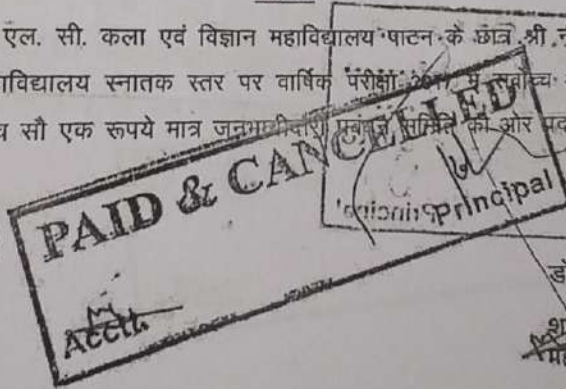 एल. सी. कला एवं विज्ञान महाविद्यालय पाटन के छात्र श्री
विद्यालय स्नातक स्तर पर वार्षिक परीक्षा 2017 में सर्वोच्च
सौ एक रूपये मात्र जनभागीदारी प्रबंधन समिति की ओर
PAID & CANCELLED
Principal
Acctt.